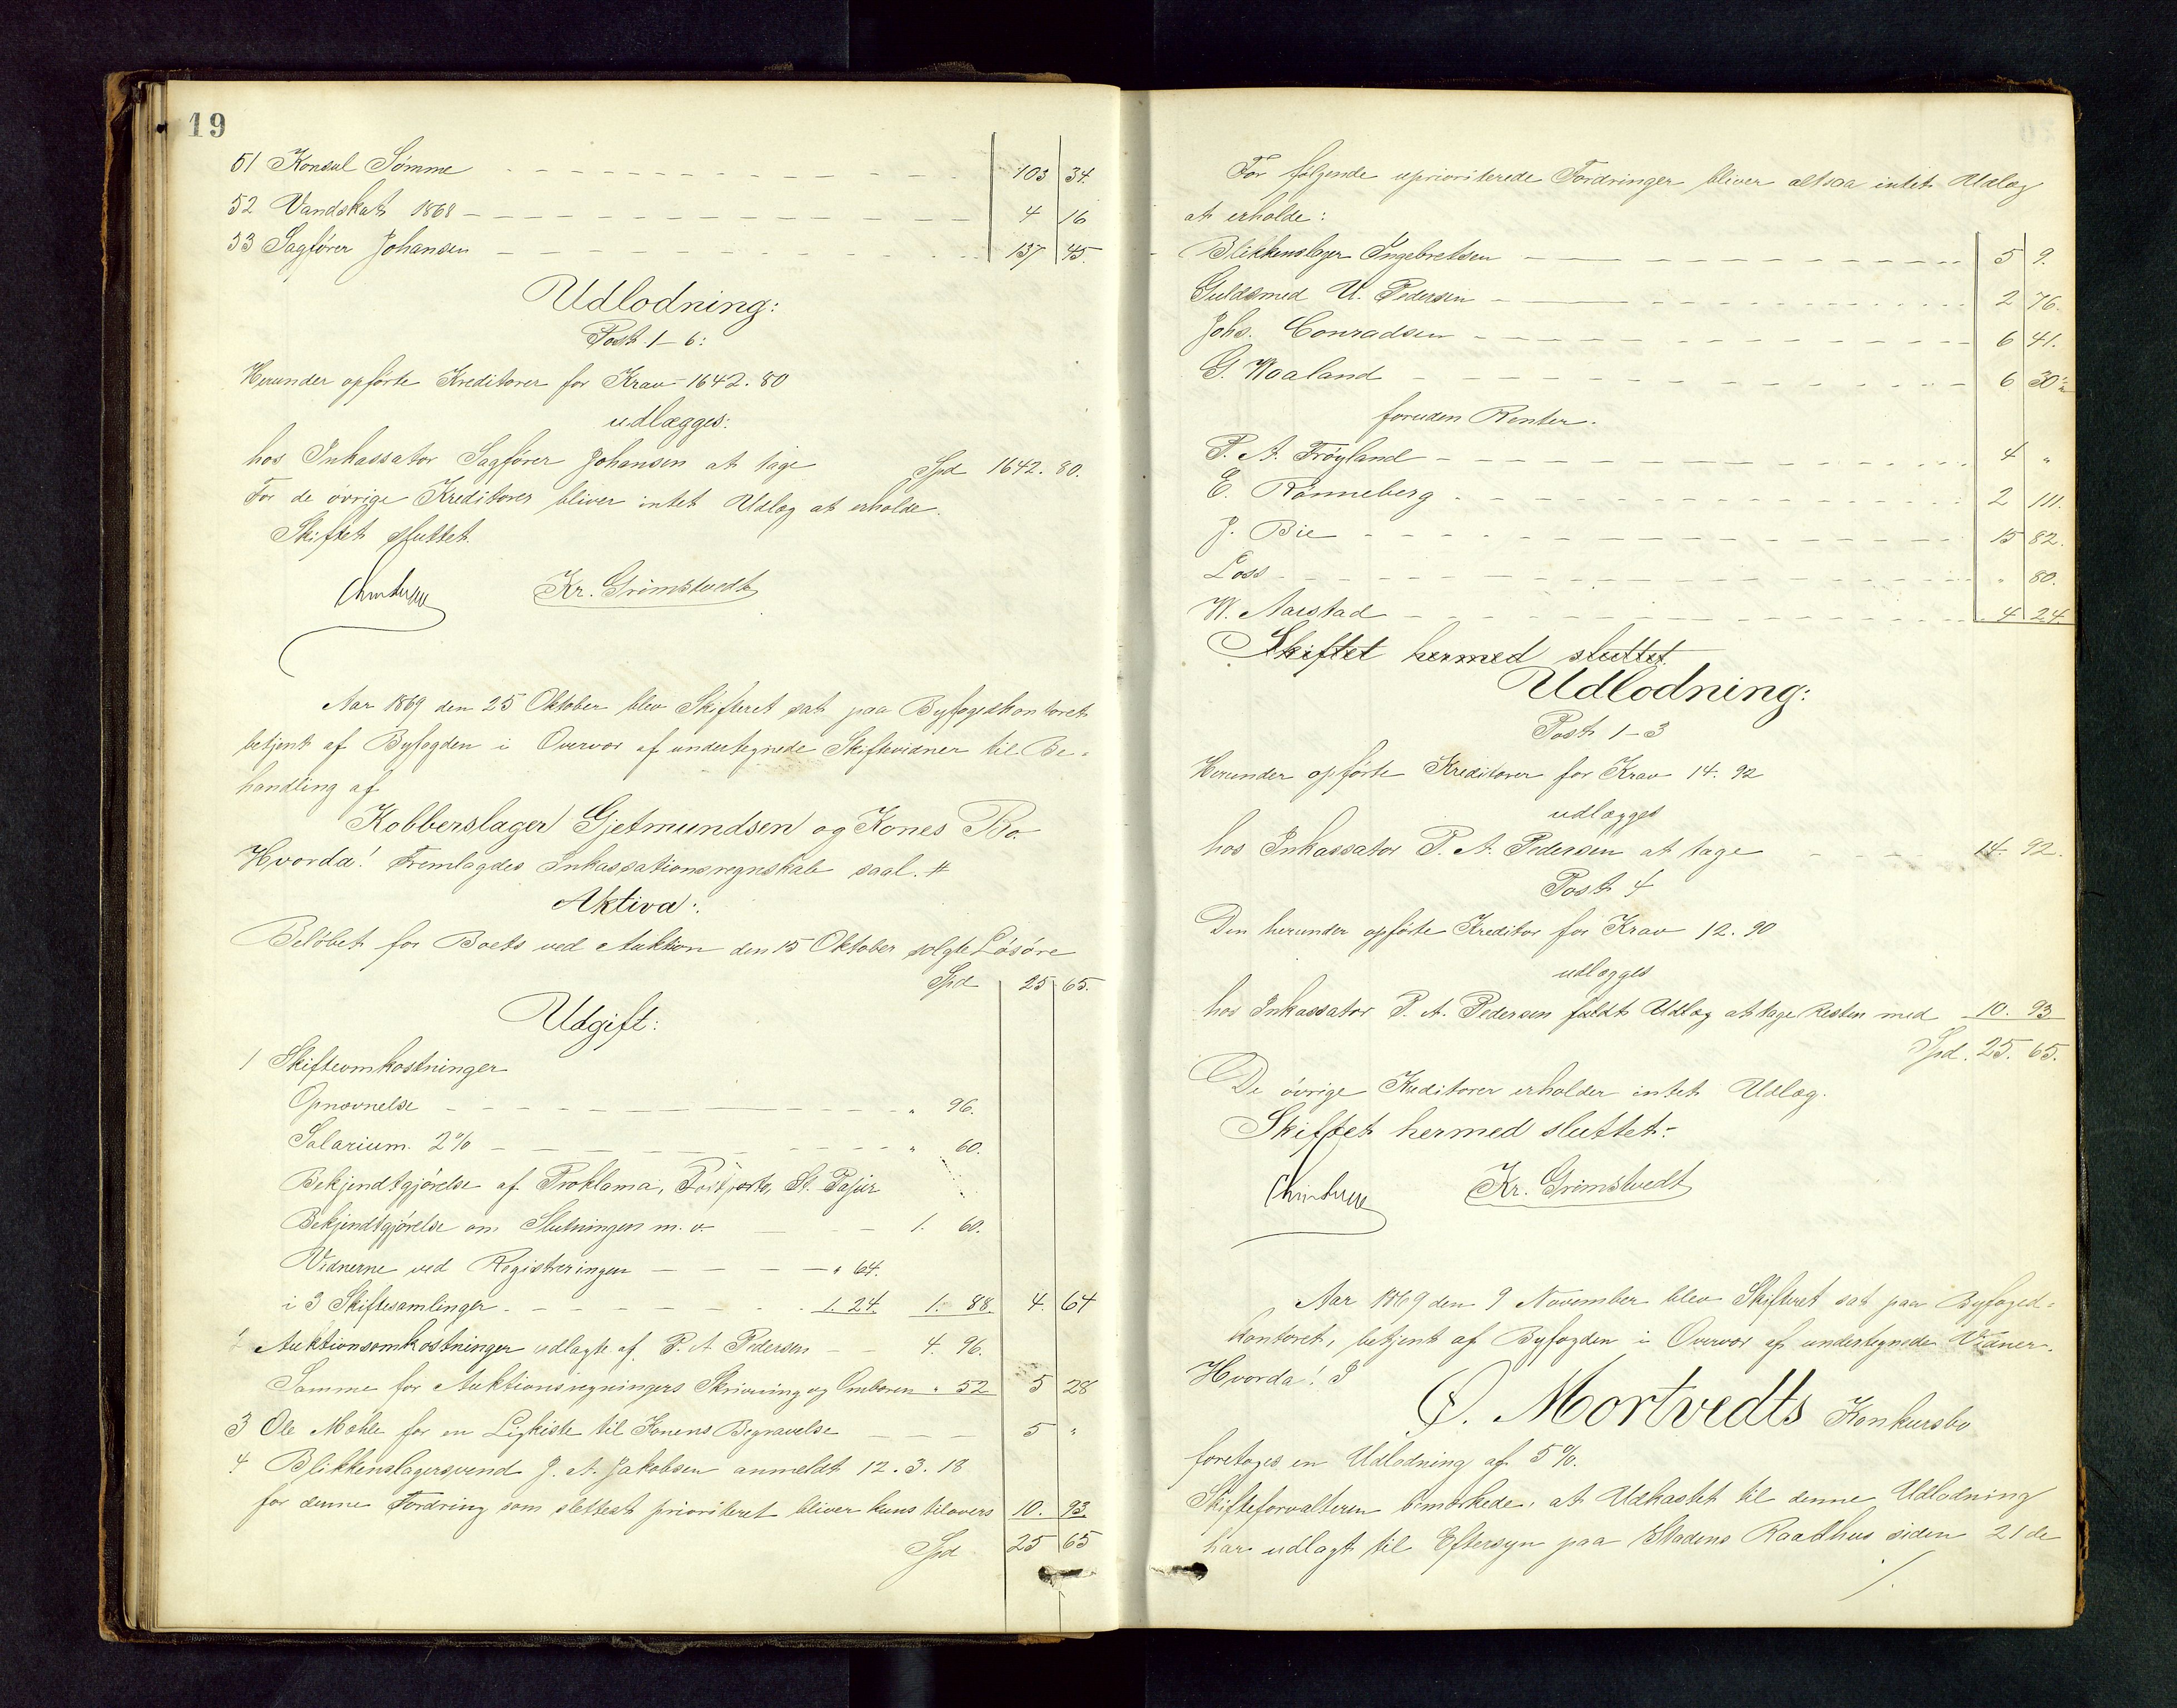 19
51 Konsul Sömme 103 34.
52 Vandskat 1868 4 16
53 Sagförer Johansen 137 45.
Udlodning:
Post 1-6:
Herunder opförte Kreditorer for Krav 1642.80
udlægges:
hos Inkassator Sagförer Johansen at tage Spd 1642.80.
For de övrige Kreditorer bliver intet Udlæg at erholde.
Skiftet sluttet.
Kr. Grimstvedt
Aar 1869 den 25 Oktober blev Skifteret sat paa Byfogedkontoret
betjent af Byfogden i Overvær af undertegnede Skiftevidner til Be-
handling af
Kobberslager Gjetmundsen og Kones Bo.
Hvorda! Fremlagdes Inkassationsregnskab saal. #
Aktiva:
Belöbet for Boets ved Auktion den 15 Oktober solgte Lösöre
Spd 25 65.
Udgift:
1 Skifteomkostninger
Opnævnelse " 96.
Salarium 2% " 60.
Bekjendtgjörelse af Proklama, Postporto, St. Papir
Bekjendtgjörelse om Slutningen m. v. 1. 60.
Vidnerne ved Registreringen " 64.
i 3 Skiftesamlinger 1.24. 1. 88. 4. 64
2 Auktionsomkostninger udlagte af P. A. Pedersen 4. 96.
Samme for Auktionsregningers Skrivning og Ombæren " 52 5 28
3 Ole Mæhle for en Ligkiste til Konens Begravelse 5 "
4 Blikkenslagersvend J. A. Jakobsen anmeldt 12.3.18
for denne Fordring som slettest prioriteret bliver kuns tilovers 10. 93.
Spd 25 65
For følgende uprioriterede Fordringer bliver altsaa intet Udlæg
at erholde:
Blikkenslager Ingebretsen 5 9.
Guldsmed U. Pedersen 2 76.
Johs. Conradsen 6 41.
G. Waaland 6 30
foruden Renter.
P. A. Fröyland 4 "
E. Rönneberg 2 111.
J. Bie 15 82.
Loss " 80.
W. Aarstad 4 24
Skiftet hermed sluttet
Udlodning:
Post 1-3
Herunder opförte Kreditorer for Krav 14.92
udlægges
hos Inkassator P. A. Pedersen at tage 14. 92.
Post 4
Den herunder opförte Kreditor for Krav 12.90
udlægges
hos Inkassator P. A. Pedersen fuldt Udlæg at tage Resten med 10. 93
Spd. 25. 65.
De övrige Kreditorer erholder intet Udlæg.
Skiftet hermed sluttet.
Kr. Grimstvedt
Aar 1869 den 9 November blev Skifteret sat paa Byfoged-
kontoret, betjent af Byfogden i Overvær af undertegnede Vidner.
Hvorda! I
O. Mortvedts Konkursbo
foretoges en Udlodning af 5%.
Skifteforvalteren bemærkede, at Udkastet til denne Udlodning
har udlagt til Eftersyn paa Stadens Raadhus siden 21de